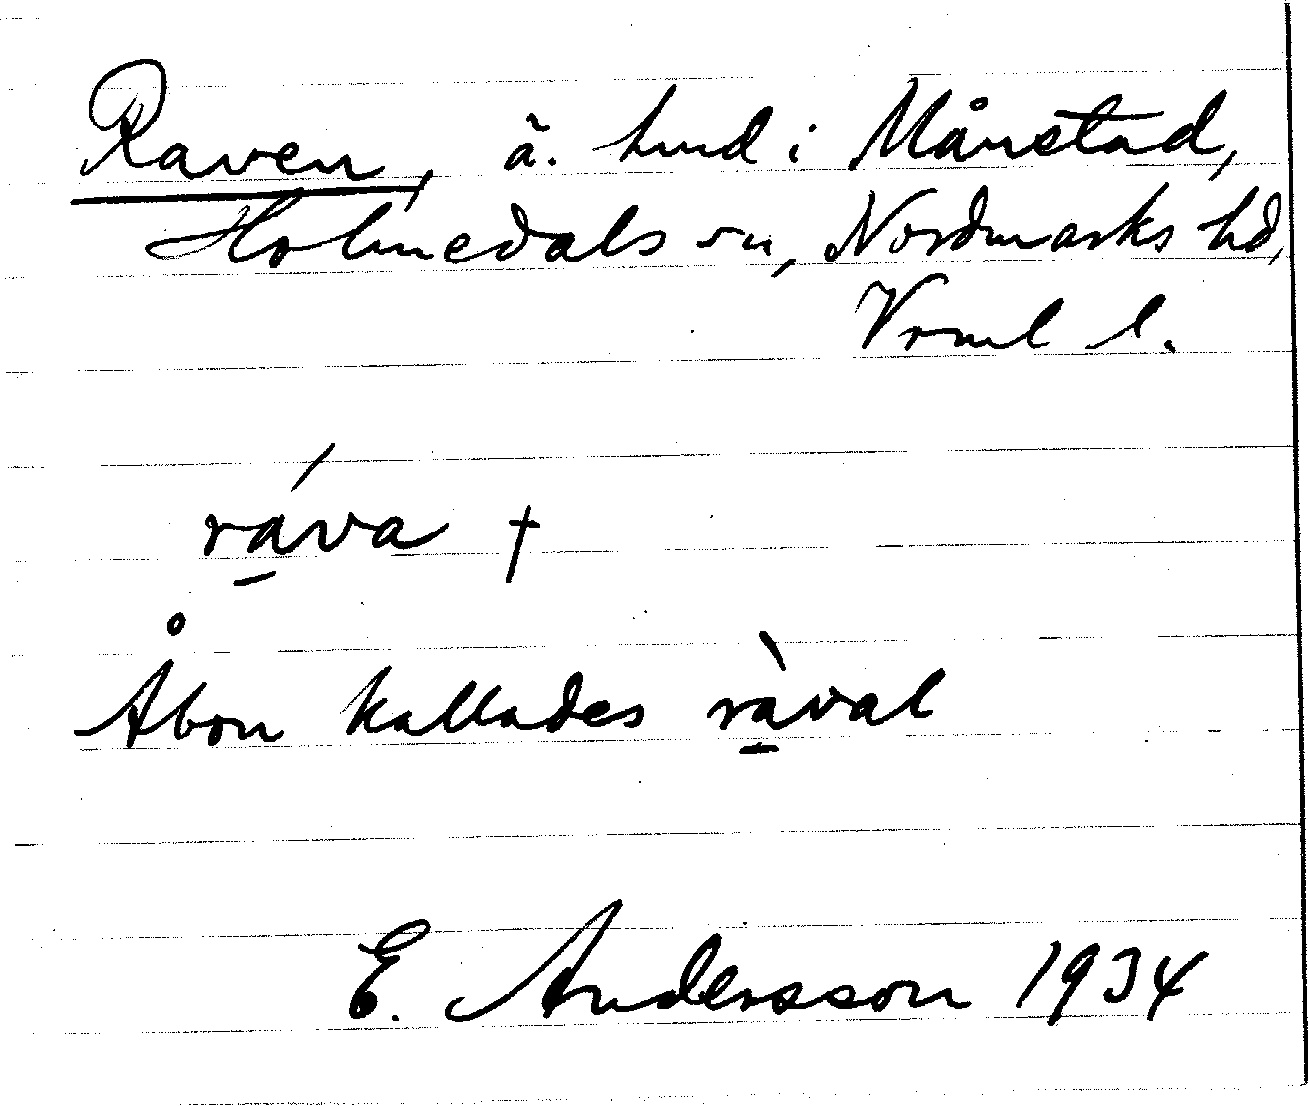 Raven, ä. hmd i Månstad,
Holmedals sn, Nordmarks hd,
Vrml l.
rá̱va †
Åbon kallades rà̱val
E. Andersson 1934